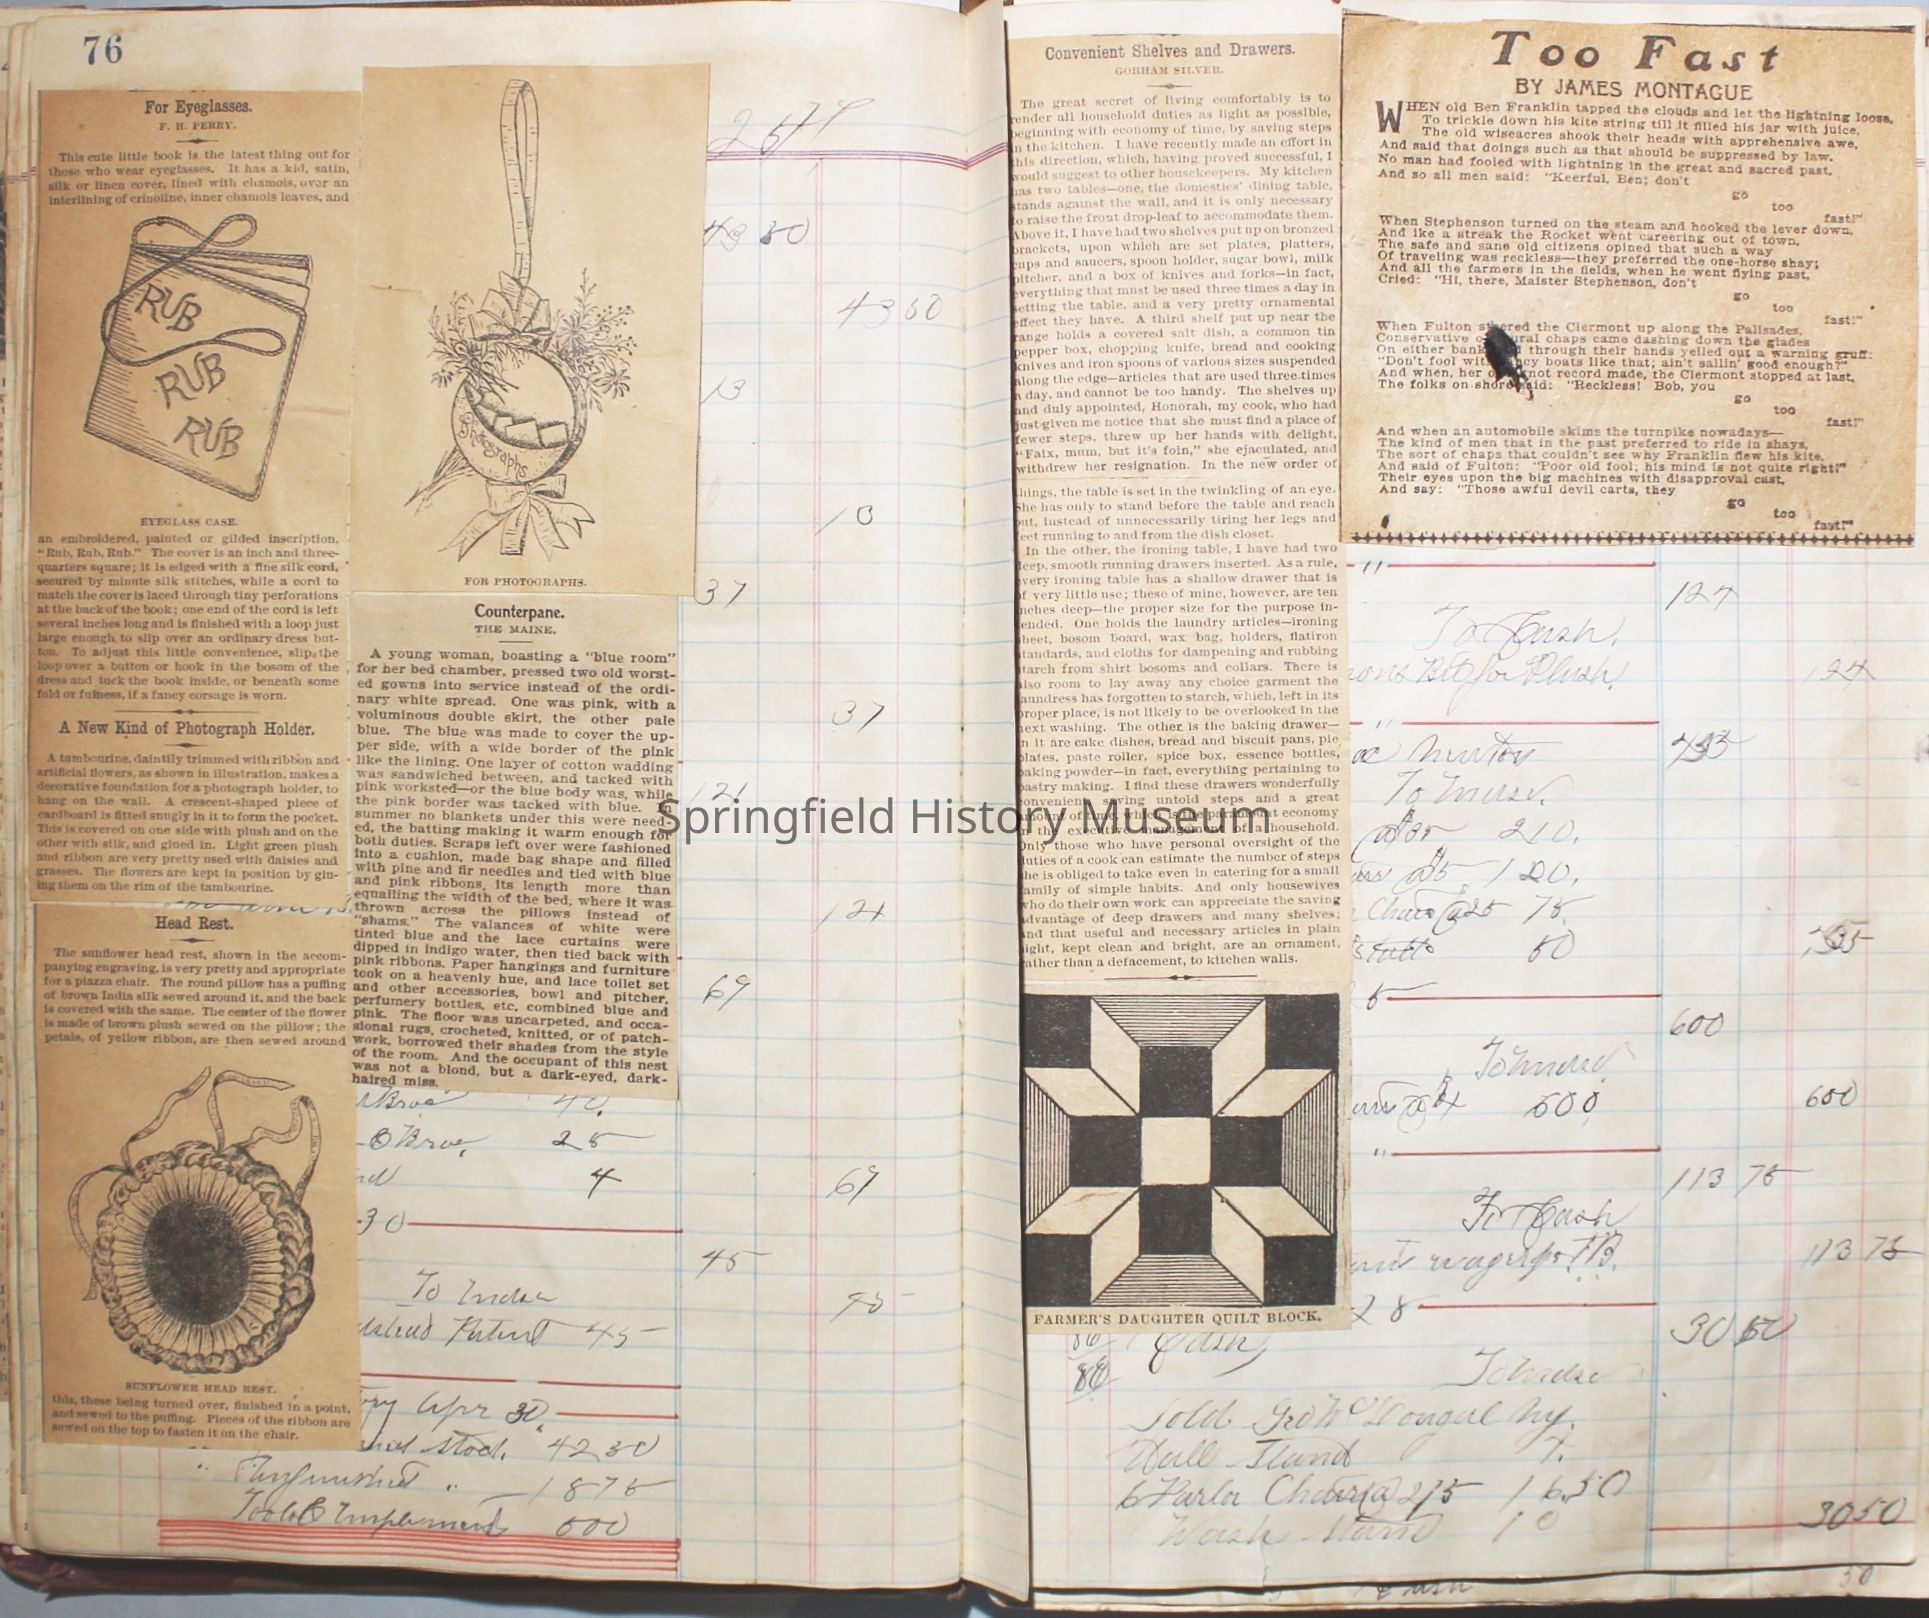 76
For Eyeglasses.
F. H. PERRY.
This cute little book is the latest thing out for
those who wear eyeglasses. It has a kid, satin,
silk or linen cover, lined with chamois, over an
interlining of crinoline, inner chamois leaves, and
RUB
RUB
RUB
EYEGLASS CASE.
an embroidered, painted or gilded inscription,
"Rub, Rub, Rub." The cover is an inch and three-
quarters square; it is edged with a fine silk cord,
secured by minute silk stitches, while a cord to
match the cover is laced through tiny perforations
at the back of the book; one end of the cord is left
several inches long and is finished with a loop just
large enough to slip over an ordinary dress but-
ton. To adjust this little convenience, slip the
loop over a button or hook in the bosom of the
dress and tuck the book inside, or beneath some
fold or fulness, if a fancy corsage is worn.
A New Kind of Photograph Holder.
A tambourine, daintily trimmed with ribbon and
artificial flowers, as shown in illustration, makes a
decorative foundation for a photograph holder, to
hang on the wall. A crescent-shaped piece of
cardboard is fitted snugly in it to form the pocket.
This is covered on one side with plush and on the
other with silk, and glued in. Light green plush
and ribbon are very pretty used with daisies and
grasses. The flowers are kept in position by glu-
ing them on the rim of the tambourine.
Head Rest.
The sunflower head rest, shown in the accom-
panying engraving, is very pretty and appropriate
for a piazza chair. The round pillow has a puffing
of brown India silk sewed around it, and the back
is covered with the same. The center of the flower
is made of brown plush sewed on the pillow; the
petals, of yellow ribbon, are then sewed around
SUNFLOWER HEAD REST.
this, these being turned over, finished in a point,
and sewed to the puffing. Pieces of the ribbon are
sewed on the top to fasten it on the chair.
Photographs
FOR PHOTOGRAPHS.
Counterpane.
THE MAINE.
A young woman, boasting a "blue room"
for her bed chamber, pressed two old worst-
ed gowns into service instead of the ordi-
nary white spread. One was pink, with a
voluminous double skirt, the other pale
blue. The blue was made to cover the up-
per side, with a wide border of the pink
like the lining. One layer of cotton wadding
was sandwiched between, and tacked with
pink worsted—or the blue body was, while
the pink border was tacked with blue. In
summer no blankets under this were need-
ed, the batting making it warm enough for
both duties. Scraps left over were fashioned
into a cushion, made bag shape and filled
with pine and fir needles and tied with blue
and pink ribbons, its length more than
equalling the width of the bed, where it was
thrown across the pillows instead of
"shams." The valances of white were
tinted blue and the lace curtains were
dipped in indigo water, then tied back with
pink ribbons. Paper hangings and furniture
took on a heavenly hue, and lace toilet set
and other accessories, bowl and pitcher,
perfumery bottles, etc, combined blue and
pink. The floor was uncarpeted, and occa-
sional rugs, crocheted, knitted, or of patch-
work, borrowed their shades from the style
of the room. And the occupant of this nest
was not a blond, but a dark-eyed, dark-
haired miss.
13
10
37
37
121
121
69
40
Bros. 25
4
69
30
45
To Mdse
Patent 45
Apr 30
stock. 42 30
Unfinished " 18 75
Tools & Implements 600
Convenient Shelves and Drawers.
GORHAM SILVER.
The great secret of living comfortably is to
render all household duties as light as possible,
beginning with economy of time, by saving steps
in the kitchen. I have recently made an effort in
this direction, which, having proved successful, I
would suggest to other housekeepers. My kitchen
has two tables—one, the domestics' dining table,
stands against the wall, and it is only necessary
to raise the front drop-leaf to accommodate them.
Above it, I have had two shelves put up on bronzed
brackets, upon which are set plates, platters,
cups and saucers, spoon holder, sugar bowl, milk
pitcher, and a box of knives and forks—in fact,
everything that must be used three times a day in
setting the table, and a very pretty ornamental
effect they have. A third shelf put up near the
range holds a covered salt dish, a common tin
pepper box, chopping knife, bread and cooking
knives and iron spoons of various sizes suspended
along the edge—articles that are used three times
a day, and cannot be too handy. The shelves up
and duly appointed, Honorah, my cook, who had
just given me notice that she must find a place of
fewer steps, threw up her hands with delight,
"Faix, mum, but it's foin," she ejaculated, and
withdrew her resignation. In the new order of
things, the table is set in the twinkling of an eye.
She has only to stand before the table and reach
out, instead of unnecessarily tiring her legs and
feet running to and from the dish closet.
In the other, the ironing table, I have had two
deep, smooth running drawers inserted. As a rule,
every ironing table has a shallow drawer that is
of very little use; these of mine, however, are ten
inches deep—the proper size for the purpose in-
tended. One holds the laundry articles—ironing
sheet, bosom board, wax bag, holders, flatiron
standards, and cloths for dampening and rubbing
starch from shirt bosoms and collars. There is
also room to lay away any choice garment the
laundress has forgotten to starch, which, left in its
proper place, is not likely to be overlooked in the
next washing. The other is the baking drawer—
in it are cake dishes, bread and biscuit pans, pie
plates, paste roller, spice box, essence bottles,
baking powder—in fact, everything pertaining to
pastry making. I find these drawers wonderfully
convenient, saving untold steps and a great
amount of time, which is the paramount economy
in the executive management of a household.
Only those who have personal oversight of the
duties of a cook can estimate the number of steps
she is obliged to take even in catering for a small
family of simple habits. And only housewives
who do their own work can appreciate the saving
advantage of deep drawers and many shelves;
and that useful and necessary articles in plain
sight, kept clean and bright, are an ornament,
rather than a defacement, to kitchen walls.
FARMER'S DAUGHTER QUILT BLOCK.
Too Fast
BY JAMES MONTAGUE
WHEN old Ben Franklin tapped the clouds and let the lightning loose,
To trickle down his kite string till it filled his jar with juice,
The old wiseacres shook their heads with apprehensive awe,
And said that doings such as that should be suppressed by law.
No man had fooled with lightning in the great and sacred past,
And so all men said: "Keerful, Ben; don't
go
too
fast!"
When Stephenson turned on the steam and hooked the lever down,
And like a streak the Rocket went careering out of town,
The safe and sane old citizens opined that such a way
Of traveling was reckless—they preferred the one-horse shay;
And all the farmers in the fields, when he went flying past,
Cried: "Hi, there, Maister Stephenson, don't
go
too
fast!"
When Fulton st ered the Clermont up along the Palisades,
Conservative ural chaps came dashing down the glades
On either bank through their hands yelled out a warning gruff:
"Don't fool wit ncy boats like that; ain't sailin' good enough?"
And when, her not record made, the Clermont stopped at last,
The folks on shore said: "Reckless! Bob, you
go
too
fast!"
And when an automobile skims the turnpike nowadays—
The kind of men that in the past preferred to ride in shays,
The sort of chaps that couldn't see why Franklin flew his kite,
And said of Fulton: "Poor old fool; his mind is not quite right!"
Their eyes upon the big machines with disapproval cast,
And say: "Those awful devil carts, they
go
too
fast!"
124
To Cash.
for Plush. 124
Newton
To Mdse.
210.
75.
50
600
To Mdse
600
600
113 75
To Cash
113 75
28
30 50
86 Cash
86 To Mdse
Sold Geo McDougal
Hall Stand 7.
6 Parlor Chairs @ 275 16.50
Wash Stand
30 50
Springfield History Museum